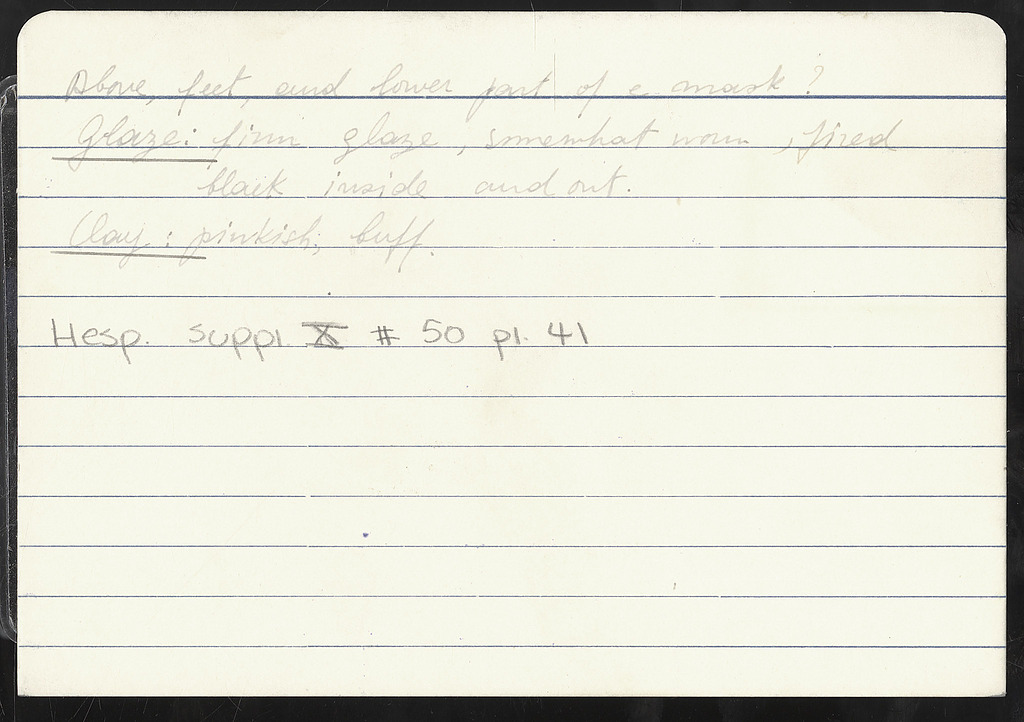 Above, feet, and lower part of a mask?
Glaze: firm glaze, somewhat worn, fired
black inside and out.
Clay: pinkish, buff.
Hesp. suppl. X # 50 pl. 41